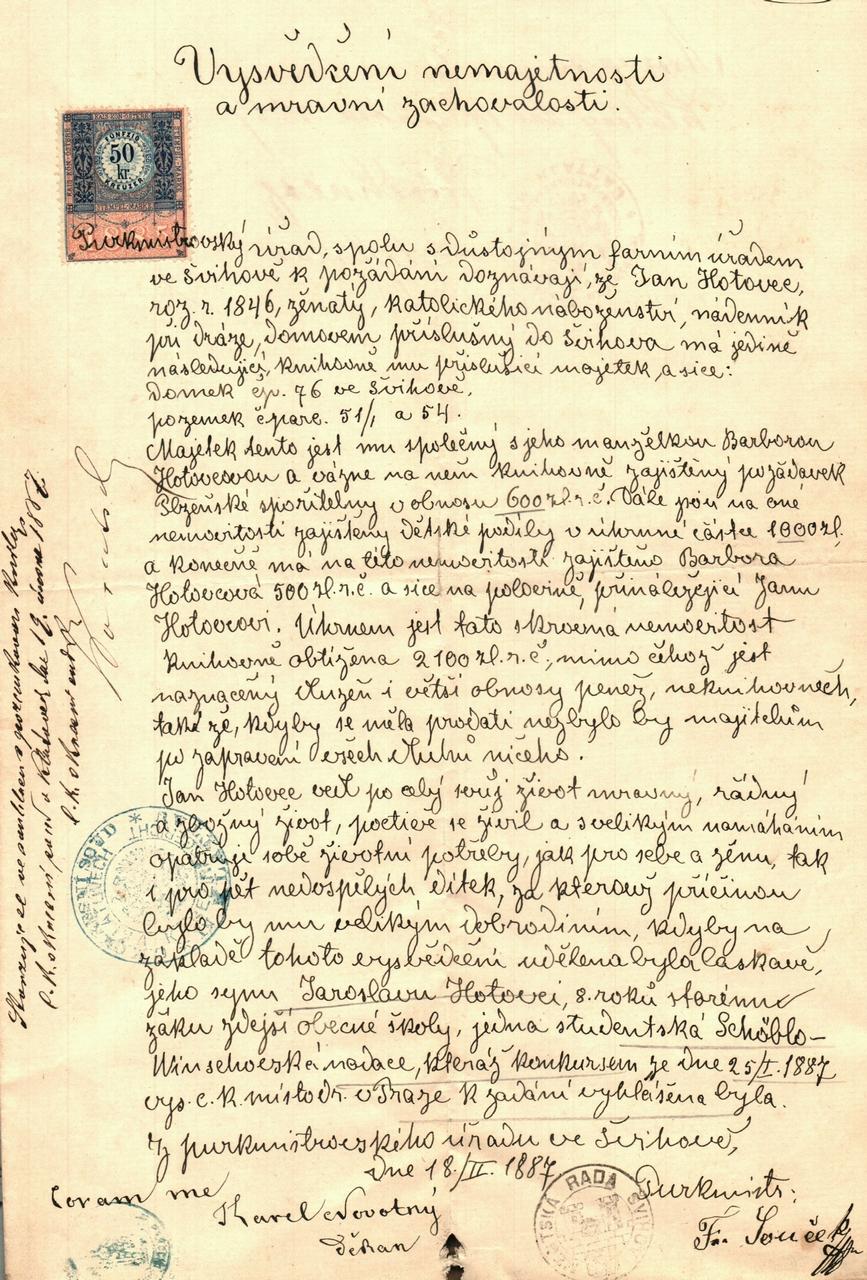 Vysvědčení nemajetnosti
a mravní zachovalosti.
KAIS. KÖN. ÖSTERR.
FÜNFZIG
50
kr.
KREUZER
STEMPEL-MARKE
Purkmistrovský úřad, spolu s důstojným farním úřadem
ve Švihově k požádání doznávají, že Jan Hotovec,
roz. r. 1846, ženatý, katolického náboženství, nádenník
při dráze, domovem příslušný do Švihova má jedině
následující, knihovně mu příslušící majetek, a sice:
Domek čp. 76 ve Švihově,
pozemek č. parc. 51/1 a 54.
Majetek tento jest mu společný s jeho manželkou Barborou
Hotovcovou a vázne na něm knihovně zajištěný požadavek
Plzeňské spořitelny v obnosu 600 zl. r. č. Dále jsou na oné
nemovitosti zajištěny dětské podíly v úhrnné částce 1000 zl.
a konečně má na této nemovitosti zajištěno Barbora
Hotovcová 500 zl. r. č. a sice na polovině, přináležející Janu
Hotovcovi. Úhrnem jest tato skrovná nemovitost
knihovně obtížena 2100 zl. r. č., mimo čehož jest
naznačený dlužen i větší obnosy peněz, neknihovnech,
také že, kdyby se měla prodati nezbylo by majitelům
po zapravení všech dluhů ničeho.
Jan Hotovec vedl po celý svůj život mravný, řádný
a zbožný život, poctivě se živil a s velikým namáháním
opatřuje sobě životní potřeby, jak pro sebe a ženu, tak
i pro pět nedospělých dítek, za kterouž příčinou
bylo by mu velikým dobrodiním, kdyby na
základě tohoto vysvědčení udělena byla laskavě,
jeho synu Jaroslavu Hotovci, 8. roků starému
žáku zdejší obecné školy, jedna studentská Schöblo-
Winschovská nadace, kteráž konkursem ze dne 25/I. 1887
vys. c. k. místodr. v Praze k zadání vyhlášena byla.
Z purkmistrovského úřadu ve Švihově,
dne 18./II. 1887.
Purkmistr:
Coram me
Karel Novotný
děkan
RADA
Fr. Souček
C. k. okresní
v Klatovech dne 19. února 1887.
C. k. okresní